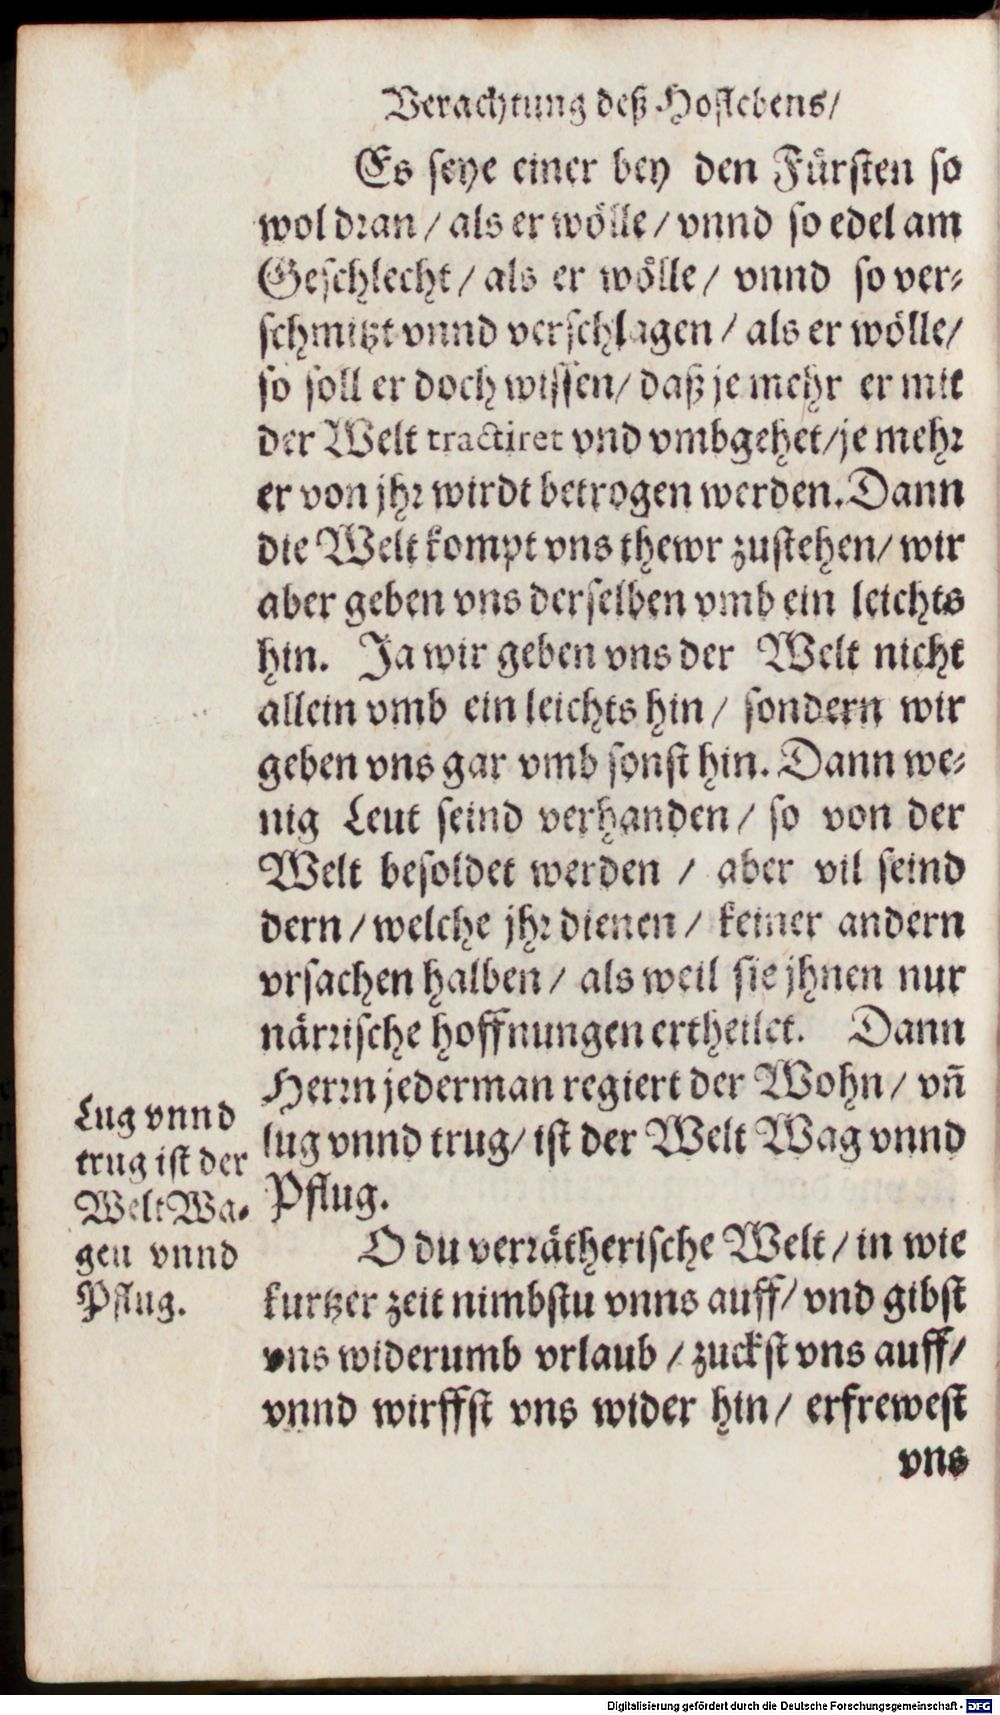 Verachtung deß Hoflebens/
Es seye einer bey den Fürsten so
wol dran / als er wölle / vnnd so edel am
Geschlecht / als er wölle / vnnd so ver-
schmitzt vnnd verschlagen / als er wölle/
so soll er doch wissen/ daß je mehr er mit
der Welt tractiret vnd vmbgehet/je mehr
er von jhr wirdt betrogen werden. Dann
die Welt kompt vns thewr zustehen/ wir
aber geben vns derselben vmb ein leichts
hin. Ja wir geben vns der Welt nicht
allein vmb ein leichts hin / sondern wir
geben vns gar vmb sonst hin. Dann we-
nig Leut seind verhanden / so von der
Welt besoldet werden / aber vil seind
dern / welche jhr dienen / keiner andern
vrsachen halben / als weil sie jhnen nur
närrische hoffnungen ertheilet. Dann
Herrn jederman regiert der Wohn / vñ
lug vnnd trug/ ist der Welt Wag vnnd
Pflug.
Lug vnnd
trug ist der
Welt Wa-
gen vnnd
Pflug.
O du verrätherische Welt / in wie
kurtzer zeit nimbstu vnns auff/ vnd gibst
vns widerumb vrlaub / zuckst vns auff/
vnnd wirffst vns wider hin / erfrewest
vns
Digitalisierung gefördert durch die Deutsche Forschungsgemeinschaft - DFG